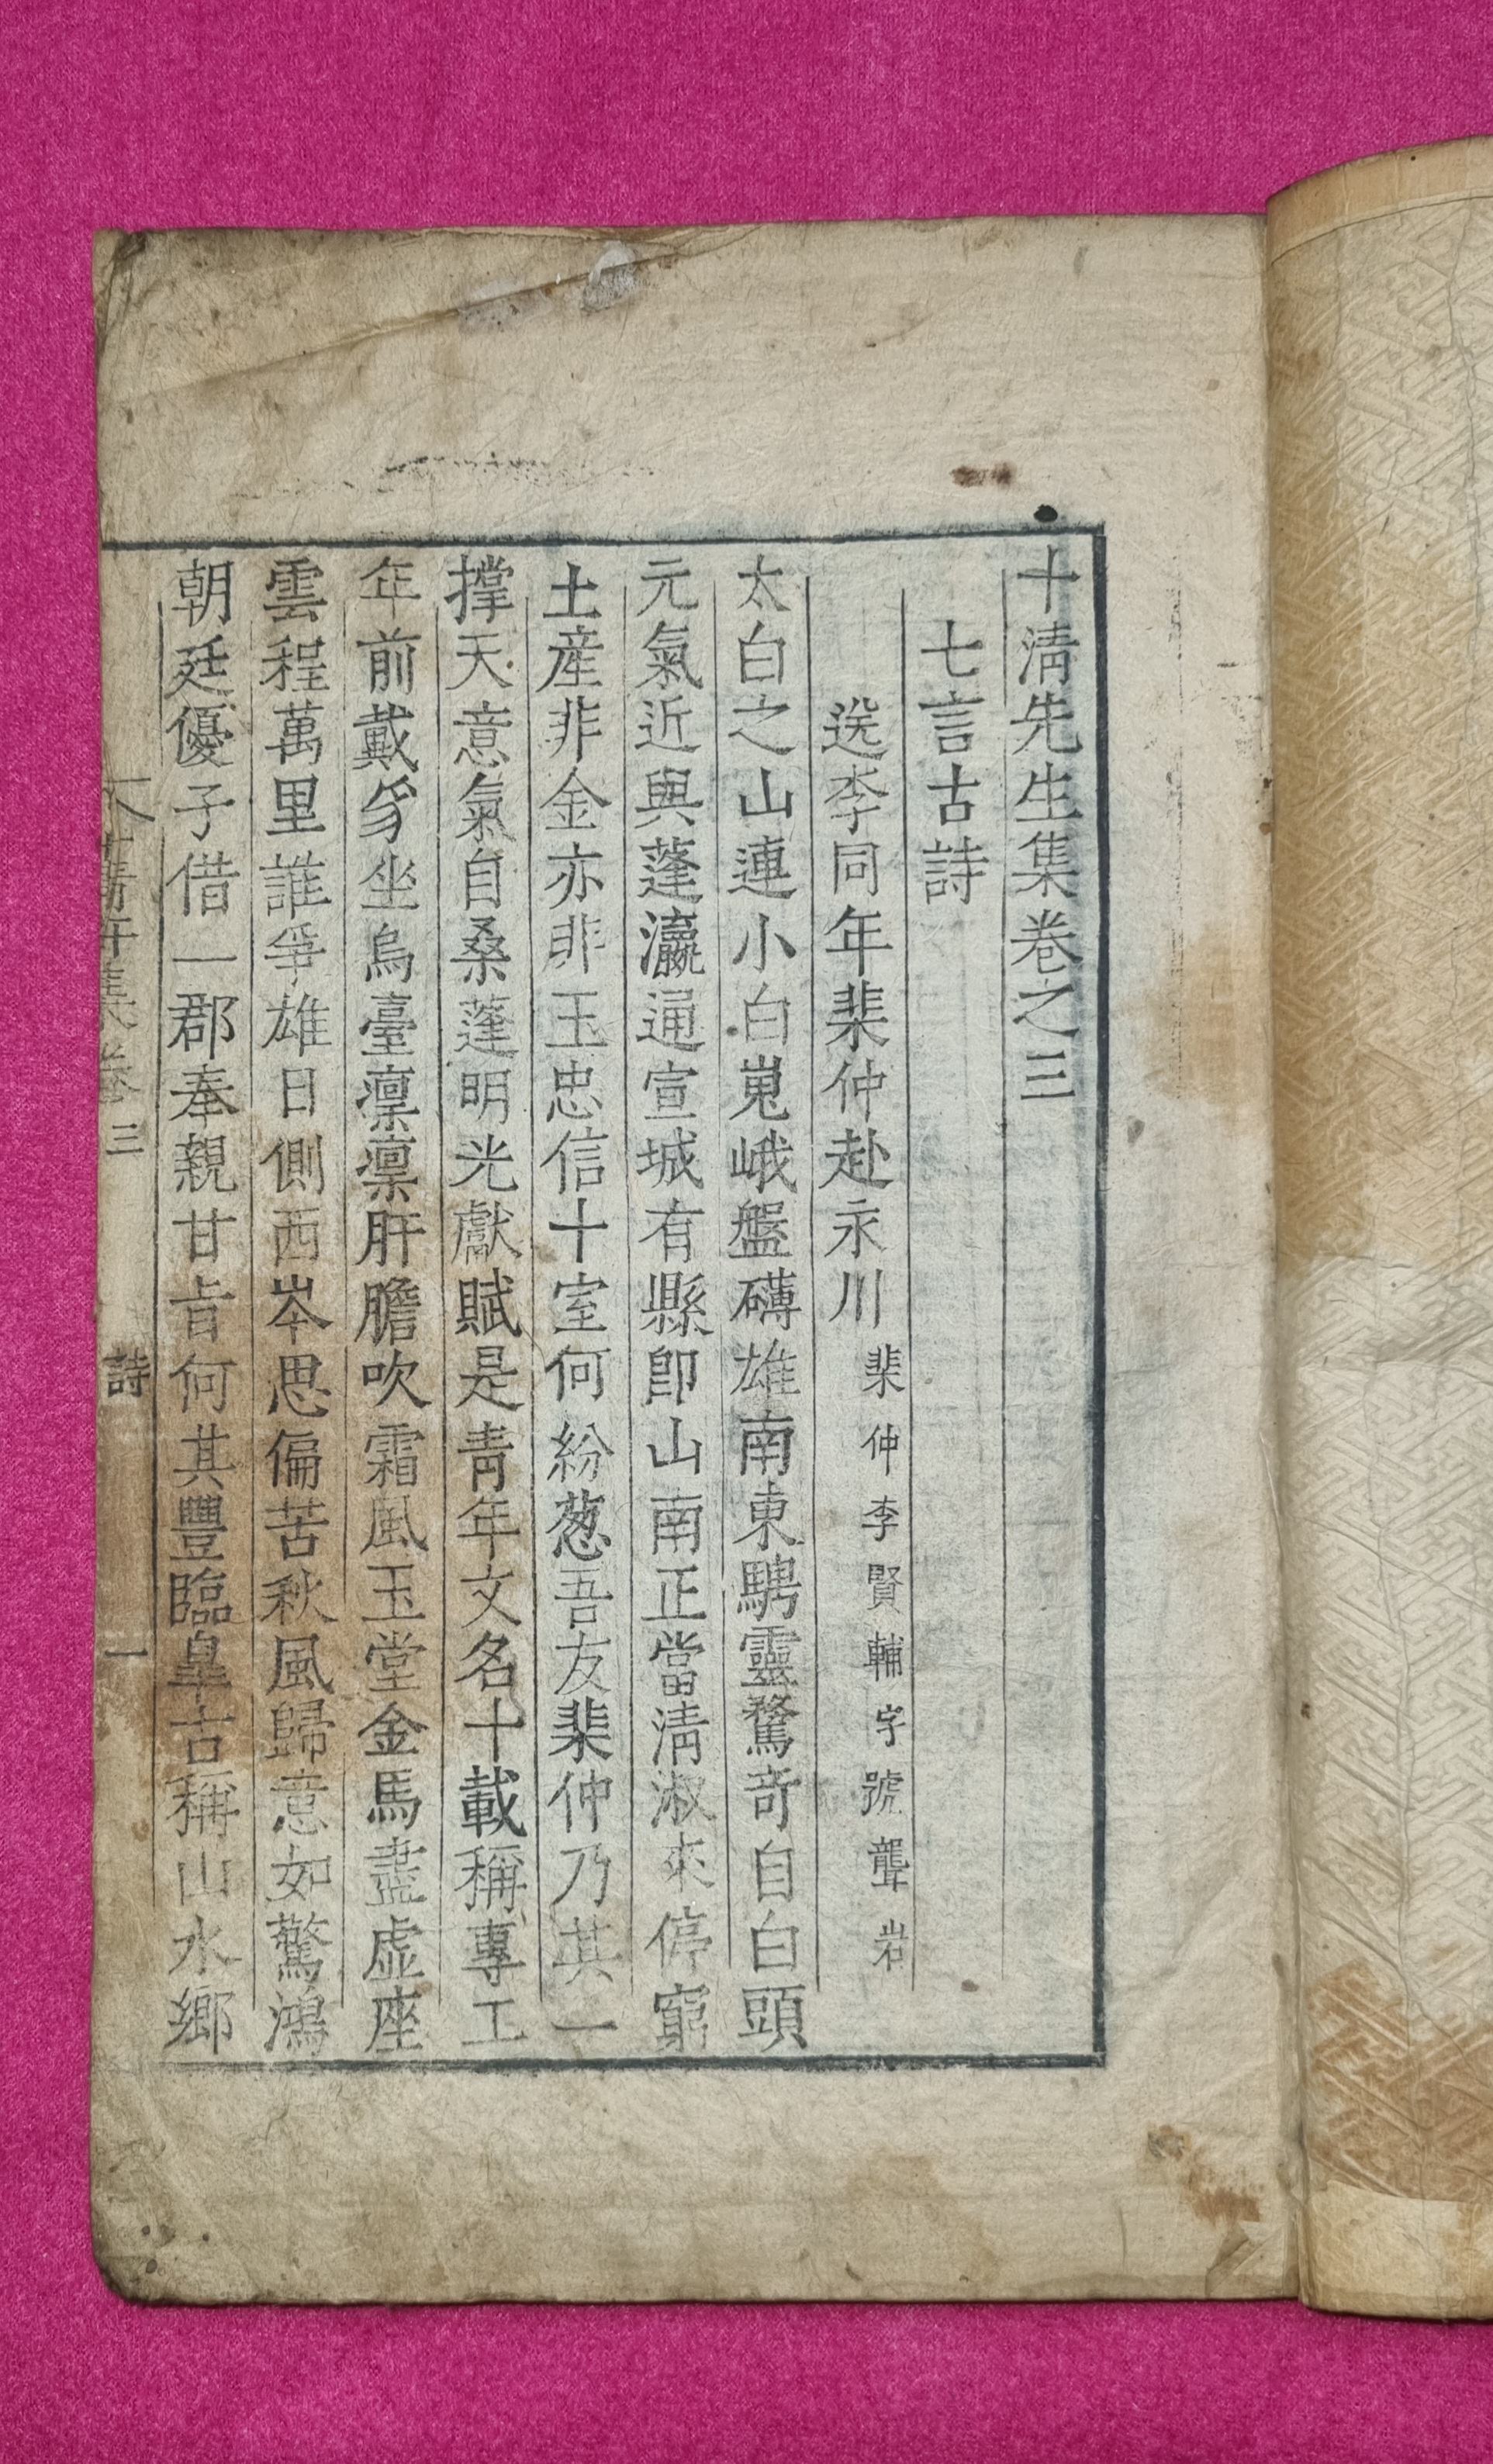 十淸先生集卷之三
七言古詩
送李同年棐仲赴永川棐仲李賢輔字號聾岩
太白之山連小白嵬峨盤礴雄南東騁靈騖奇自白頭
元氣近與蓬瀛通宣城有縣卽山南正當淸淑來停窮
土産非金亦非玉忠信十室何紛葱吾友棐仲乃其一
撑天意氣自桑蓬明光獻賦是靑年文名十載稱專工
年前戴豸坐烏臺凛凛肝膽吹霜風玉堂金馬盡虛座
雲程萬里誰爭雄日側西岑思偏苦秋風歸意如驚鴻
朝廷優子借一郡奉親甘旨何其豐臨皐古稱山水鄕
十淸軒集卷三 詩 一